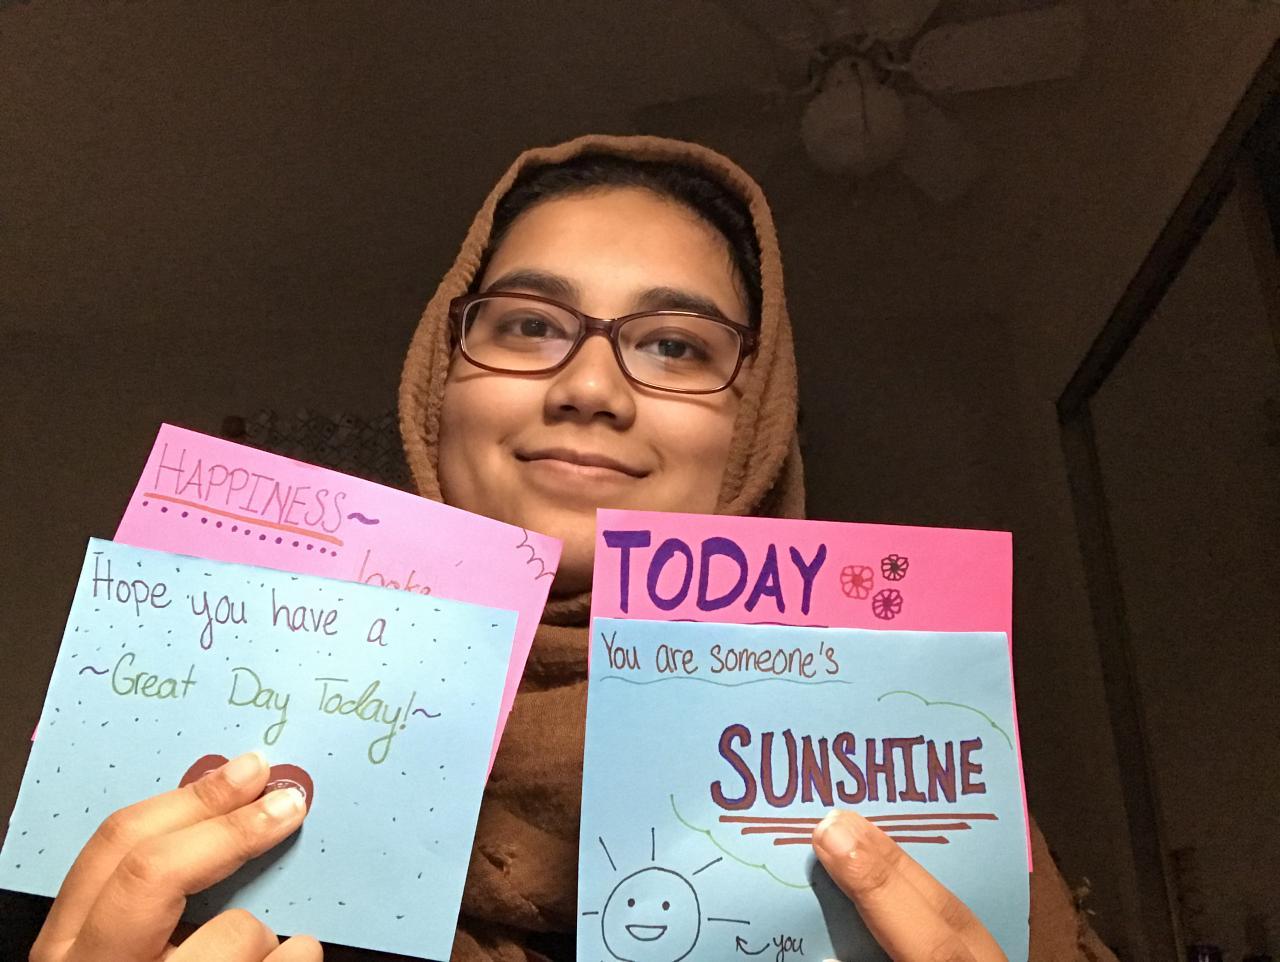 HAPPINESS~
Hope you have a
~Great Day Today!~
TODAY
You are someone's
SUNSHINE
you